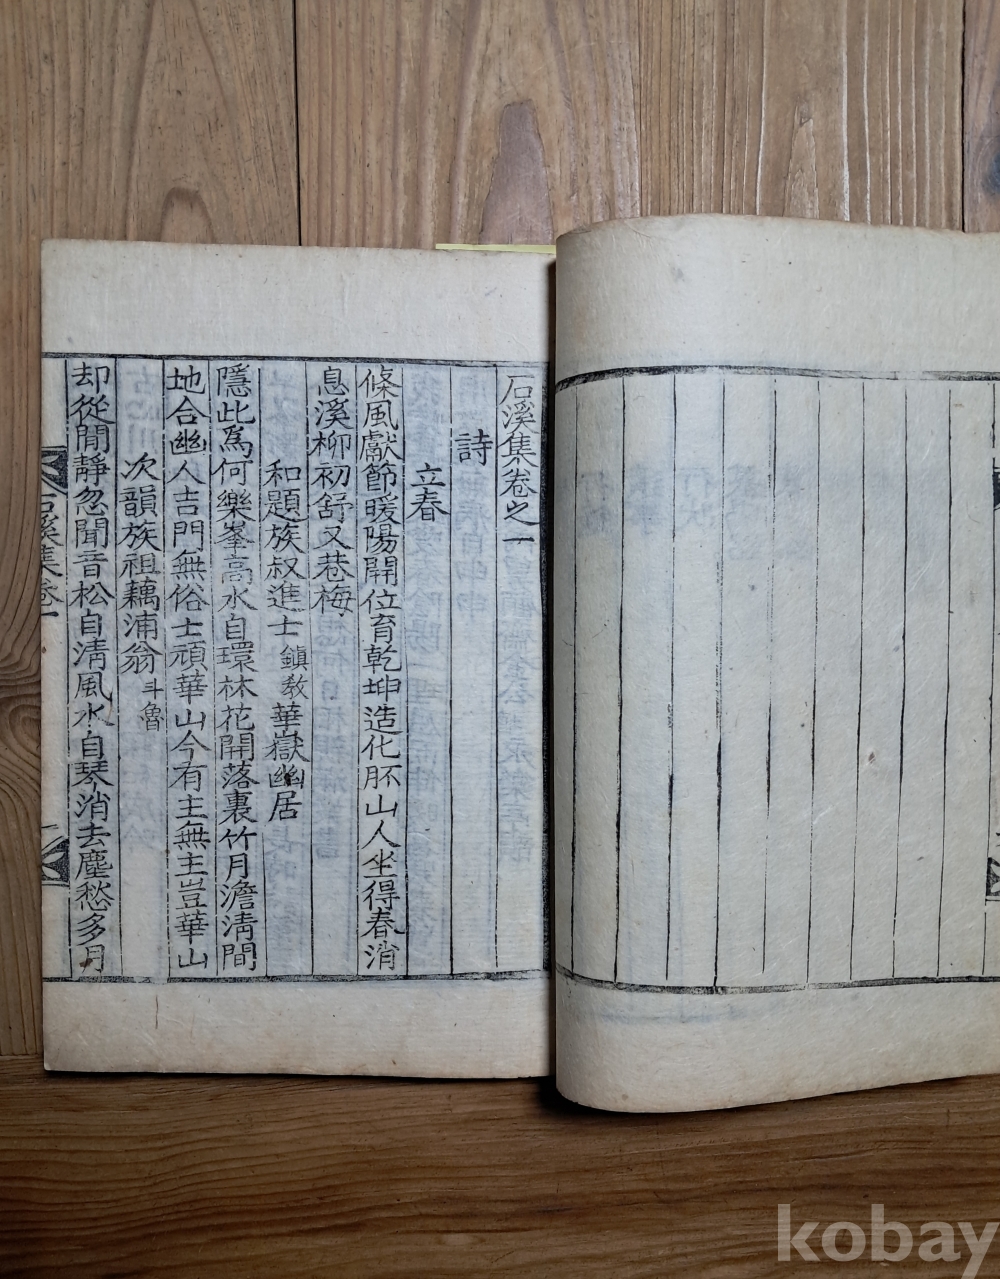 石溪集卷之一
詩
立春
條風獻節暖陽開位育乾坤造化胚山人坐得春消
息溪柳初舒又巷梅
和題族叔進士鎭敎華嶽幽居
隱此爲何樂峯高水自環林花開落裏竹月澹淸間
地合幽人吉門無俗士頑華山今有主無主豈華山
次韻族祖藕浦翁斗魯
却從閒靜忽聞音松自淸風水自琴消去塵愁多月
石溪集卷一
kobay